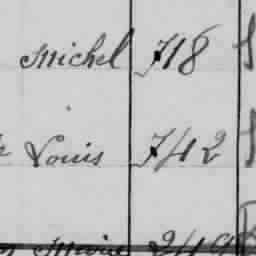 Michel 718
Louis 742
Marie 249